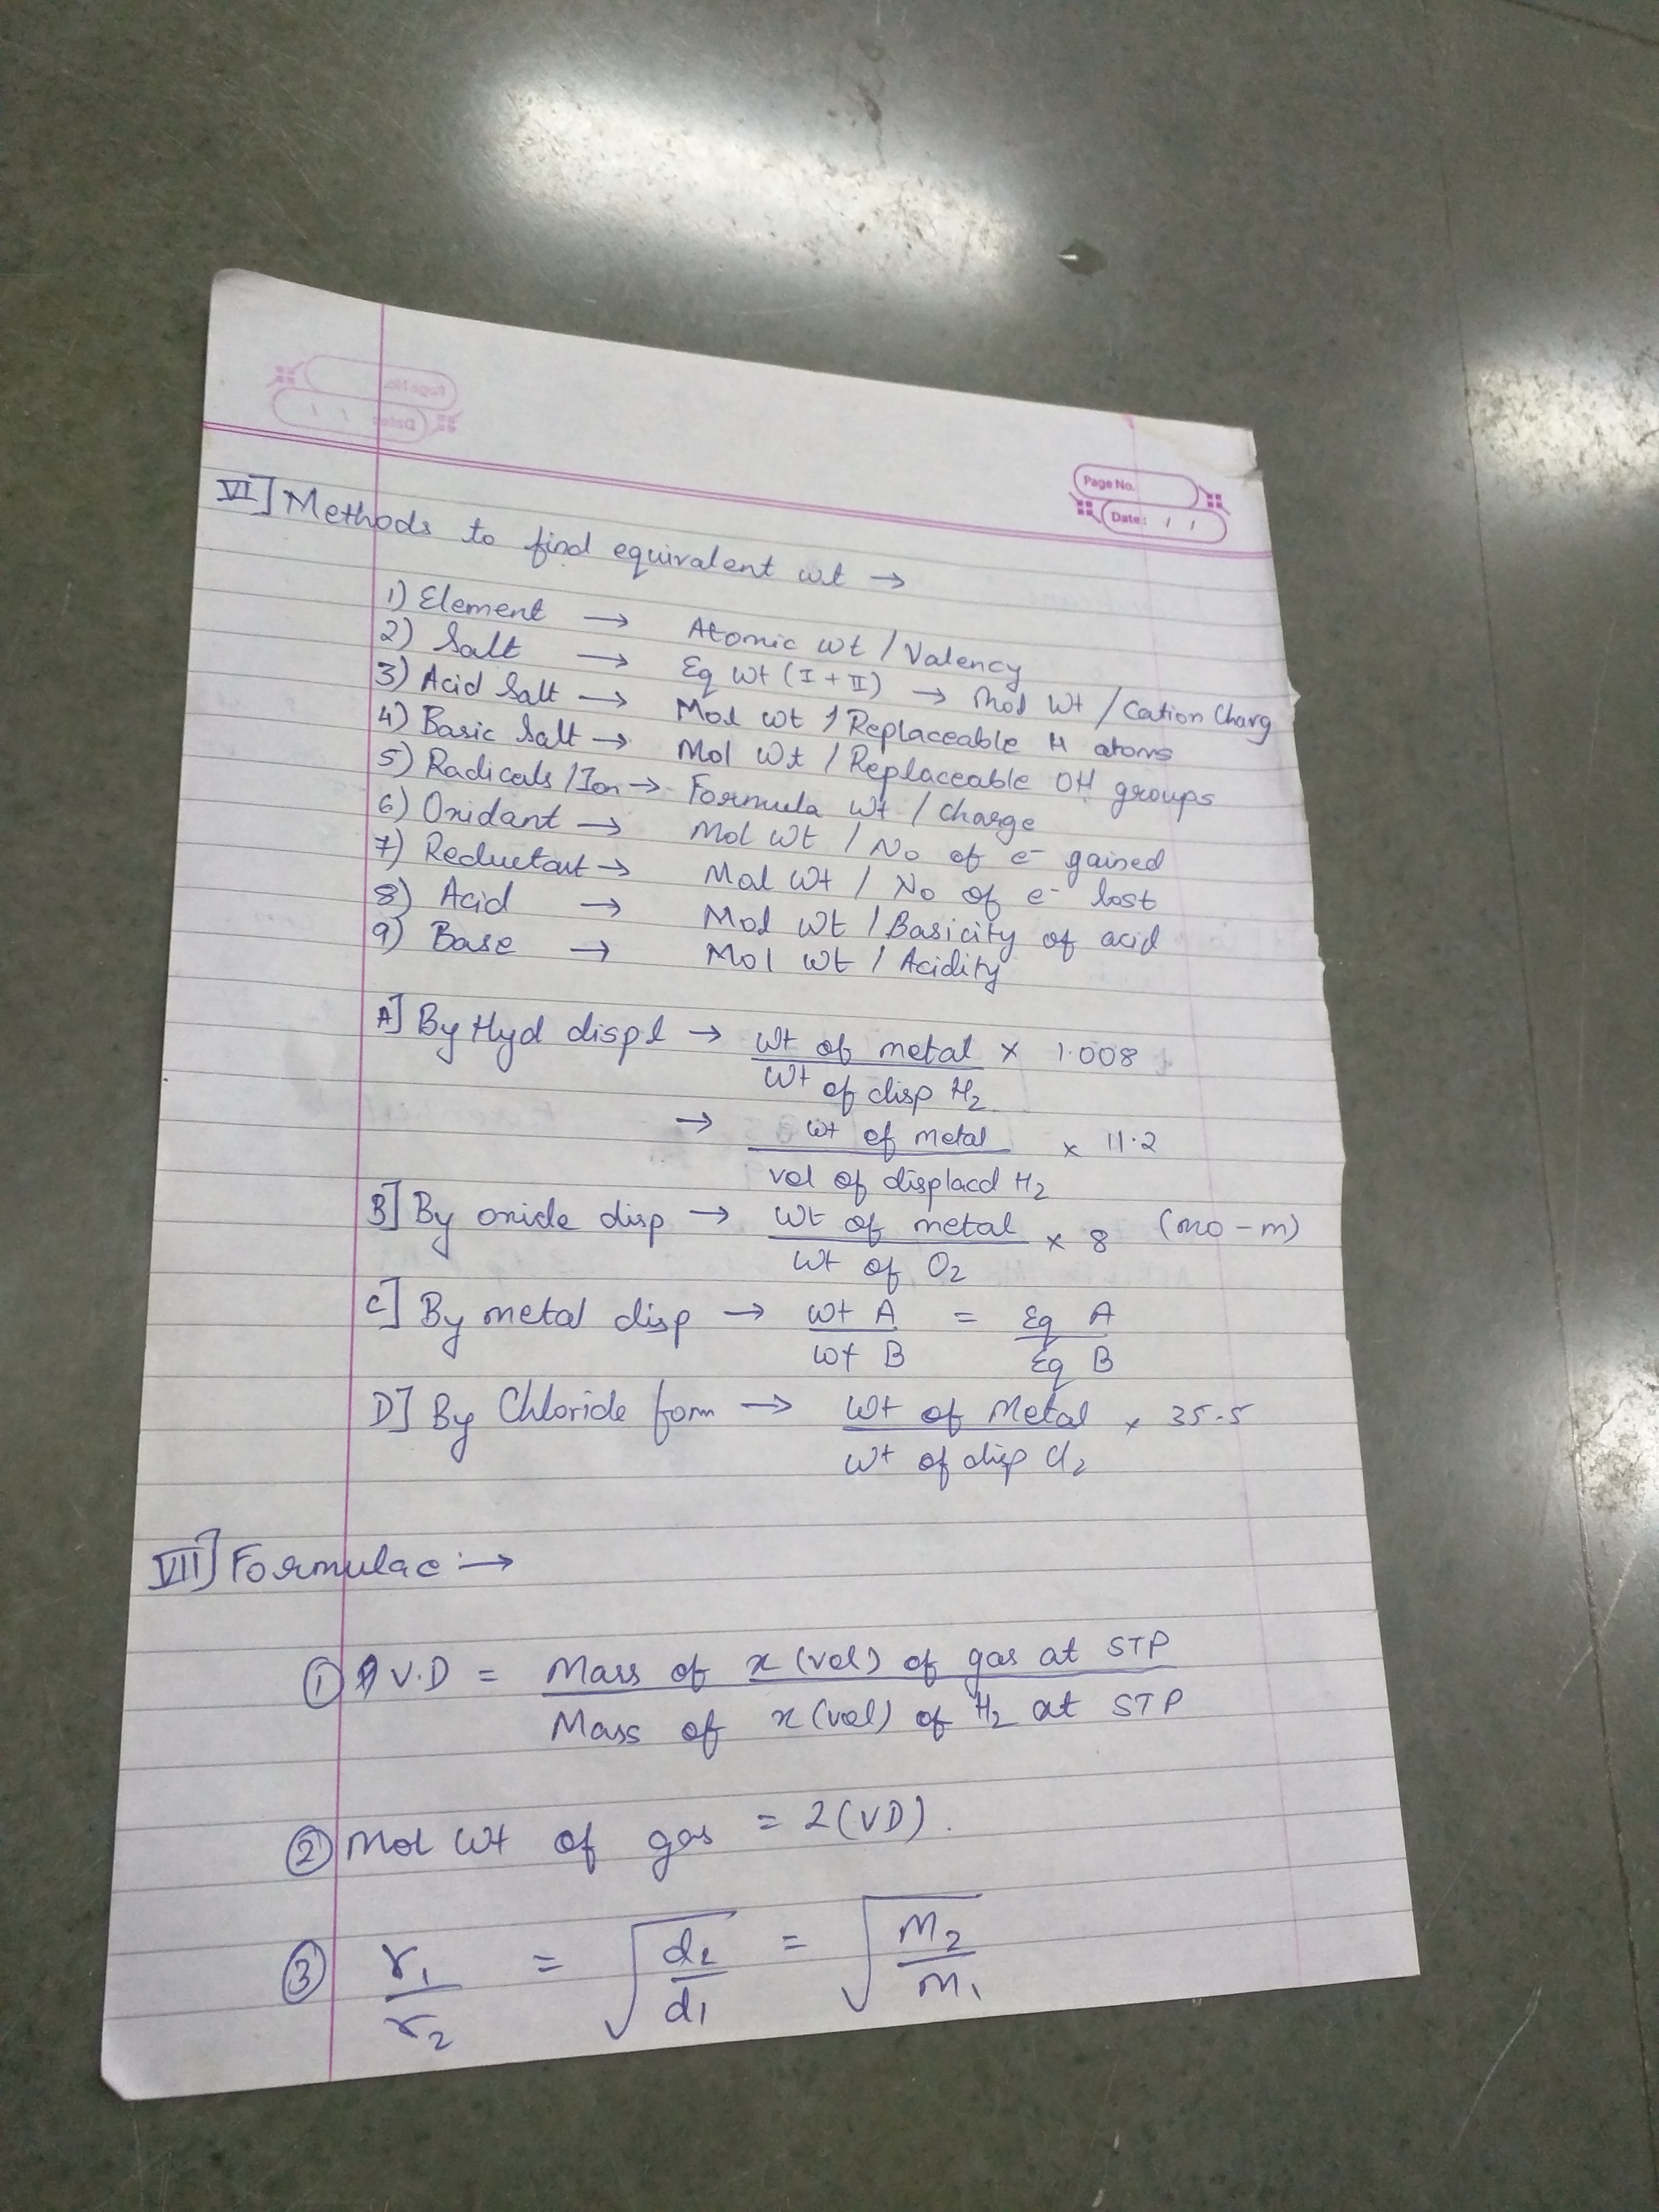 Page No.
Date: / /
VI] Methods to find equivalent wt →
1) Element → Atomic wt / Valency
2) Salt → Eq wt (I + II) → Mol Wt / Cation Charg
3) Acid Salt → Mol wt / Replaceable H atoms
4) Basic Salt → Mol Wt / Replaceable OH groups
5) Radicals / Ion → Formula wt / Charge
6) Oxidant → Mol Wt / No of e⁻ gained
7) Reductant → Mol Wt / No of e⁻ lost
8) Acid → Mol Wt / Basicity of acid
9) Base → Mol wt / Acidity
A] By Hyd displ → wt of metal × 1.008
Wt of disp H₂
→ wt of metal × 11.2
vol of displacd H₂
B] By oxide disp → Wt of metal × 8 (mo - m)
Wt of O₂
C] By metal disp → wt A = Eq A
wt B Eq B
D] By Chloride form → Wt of Metal × 35.5
Wt of disp Cl₂
VII] Formulae :→
① V.D = Mass of x (vol) of gas at STP
Mass of x (vol) of H₂ at STP
② Mol Wt of gas = 2 (VD).
③ r₁ = √ d₂ = √ M₂
r₂ d₁ M₁